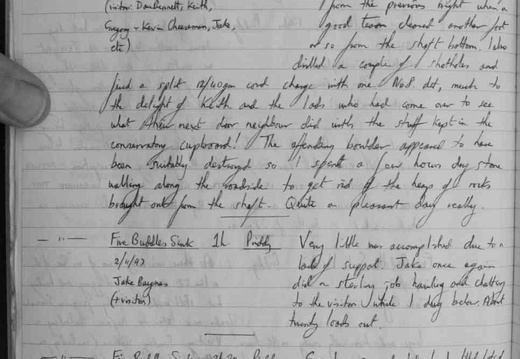 (visitors: Dan Bennett, Keith,
Gregory + Kevin Cheeseman, Jake,
etc)
from the previous night when a
good team cleared another foot
or so from the shaft bottom. I also
drilled a couple of shotholes and
fired a split 12/40gm cord charge with one No8 det, much to
the delight of Keith and the lads who had come over to see
what their next door neighbour did with the stuff kept in the
conservatory cupboard! The offending boulder appeared to have
been suitably destroyed so I spent a few hours dry stone
walling along the roadside to get rid of the heaps of rocks
brought out from the shaft. Quite a pleasant day really.
— " — Five Buddles Sink 1h Priddy
2/11/97
Jake Baynes
(+ visitor)
Very little was accomplished due to a
lack of support. Jake once again
did a sterling job hauling and chatting
to the visitor while I dug below. About
twenty loads out.